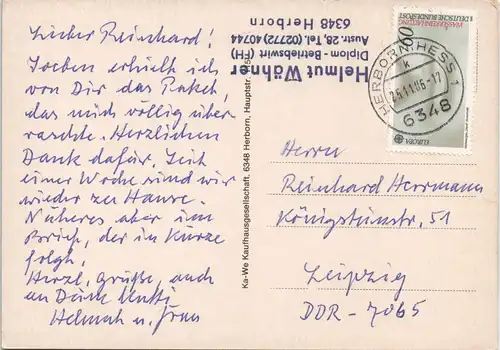 Lieber Reinhard!
Soeben erhielt ich
von Dir das Paket,
das mich völlig über-
raschte. Herzlichen
Dank dafür. Seit
einer Woche sind wir
wieder zu Hause.
Näheres aber im
Brief, der in Kürze
folgt.
Herzl. Grüße, auch
an Deine
Helmut u. Frau
Helmut Wähner
Diplom - Betriebswirt (FH)
Austr. 28, Tel. (02772) 40744
6348 Herborn
Ka-We Kaufhausgesellschaft, 6348 Herborn, Hauptstr.
DEUTSCHE BUNDESPOST
EUROPA
HERBORN, HESS 1
k
6348
Herrn
Reinhard Herrmann
Königsteinstr. 51
Leipzig
DDR - 7065